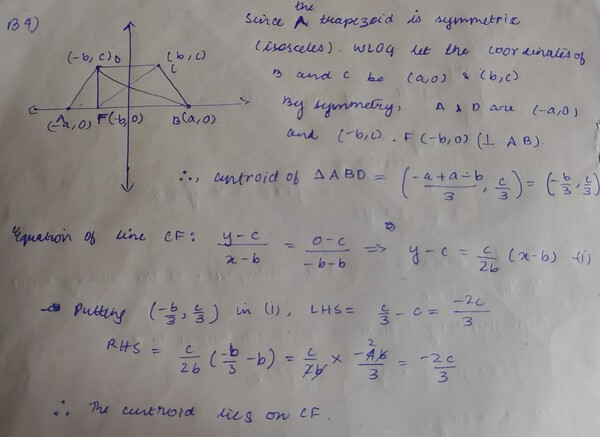 B4)
the
Since A trapezoid is symmetric
(isosceles). WLOG let the coordinates of
B and C be (a,0) & (b,c)
By symmetry, A & D are (-a,0)
and (-b,c). F(-b,0) (⊥ AB).
(-b, c) D
(b, c)
C
A
(-a, 0)
F(-b,0)
B(a,0)
∴, centroid of ΔABD = ((-a+a-b)/3, c/3) = (-b/3, c/3)
Equation of line CF: (y-c)/(x-b) = (0-c)/(-b-b) ⟹ y-c = c/2b (x-b) -(i)
Putting (-b/3, c/3) in (i), LHS = c/3 - c = -2c/3
RHS = c/2b (-b/3 - b) = c/2b × -4b/3 = -2c/3
2
∴ The centroid lies on CF.